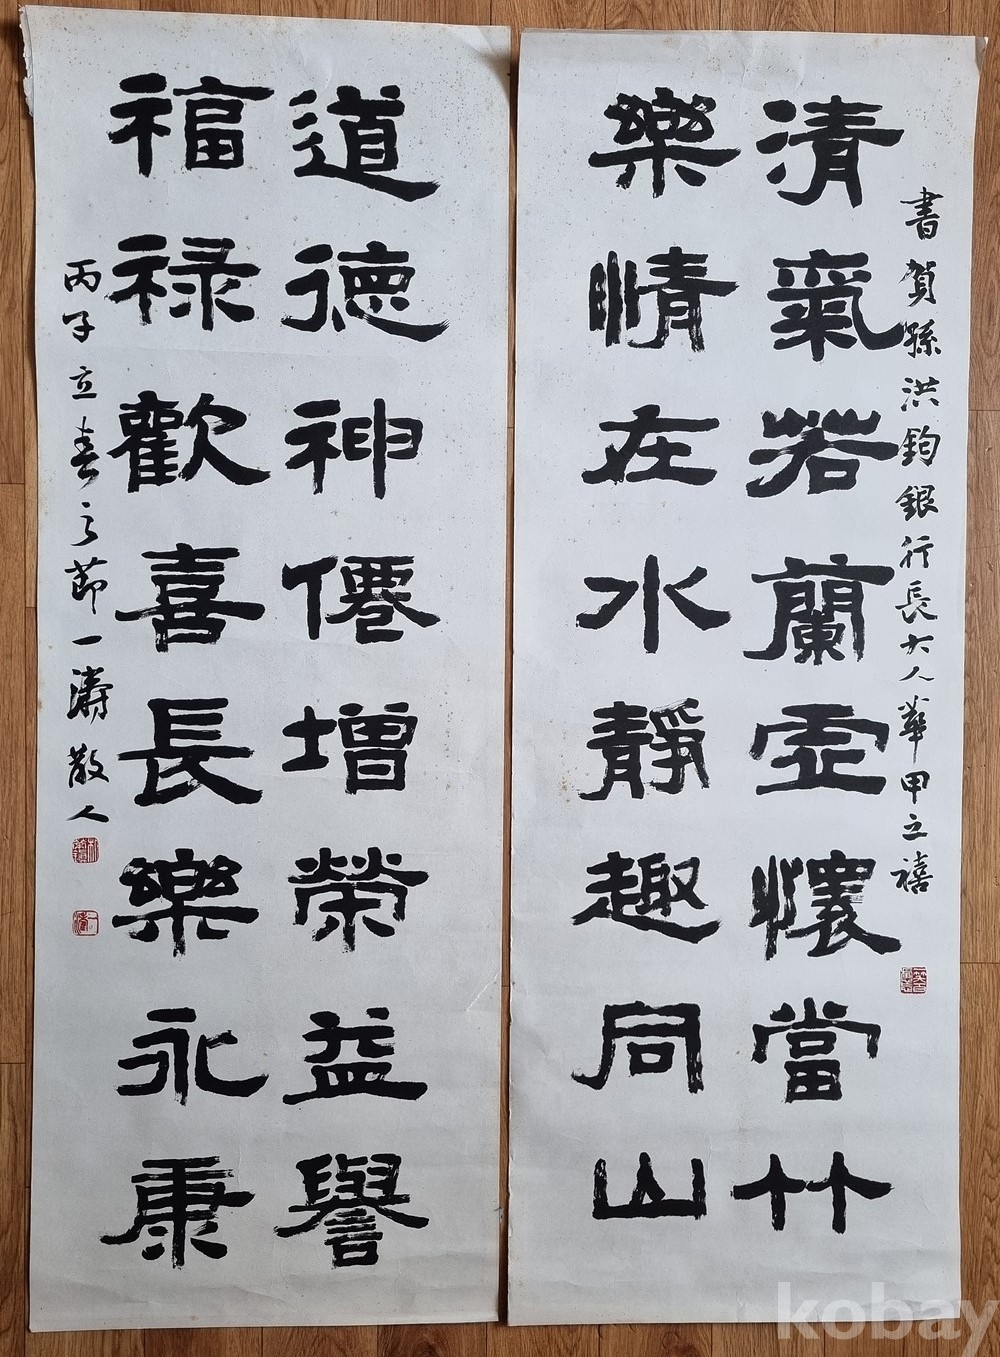 書賀孫洪鈞銀行長大人華甲之禧
清氣若蘭虛懷當竹
樂情在水靜趣同山
道德神僊增榮益譽
福禄歡喜長樂永康
丙子立春之節一濤散人
kobay